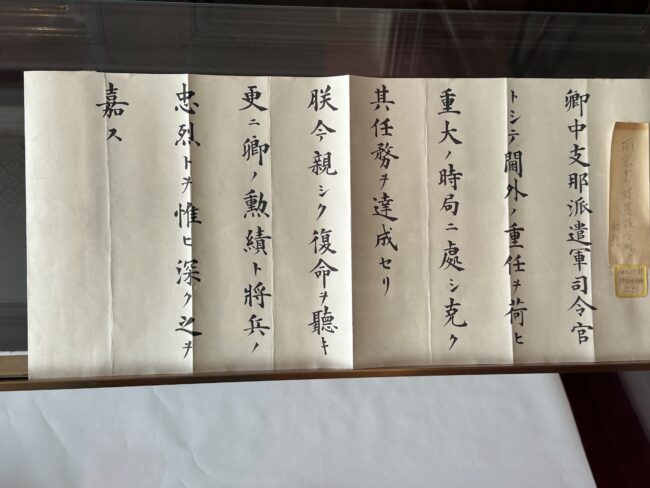 卿中支那派遣軍司令官
トシテ閫外ノ重任ヲ荷ヒ
重大ノ時局ニ處シ克ク
其任務ヲ達成セリ
朕今親シク復命ヲ聽キ
更ニ卿ノ勲績ト將兵ノ
忠烈トヲ惟ヒ深ク之ヲ
嘉ス